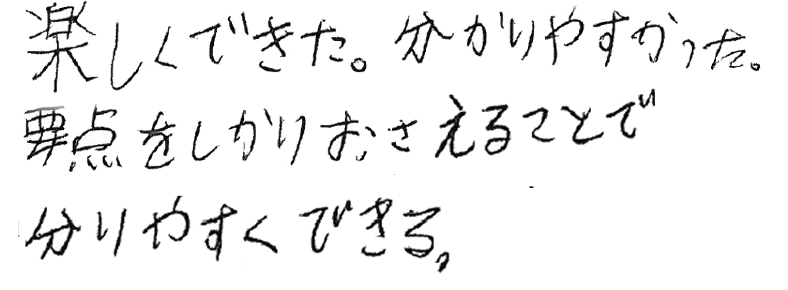 楽しくできた。分かりやすかった。
要点をしかりおさえることで
分りやすくできる。